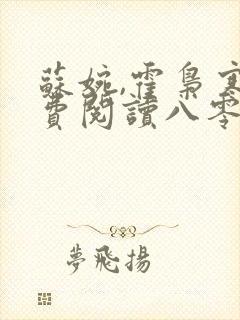 蘇婉,霍梟寒
費閱讀八零
夢飛揚